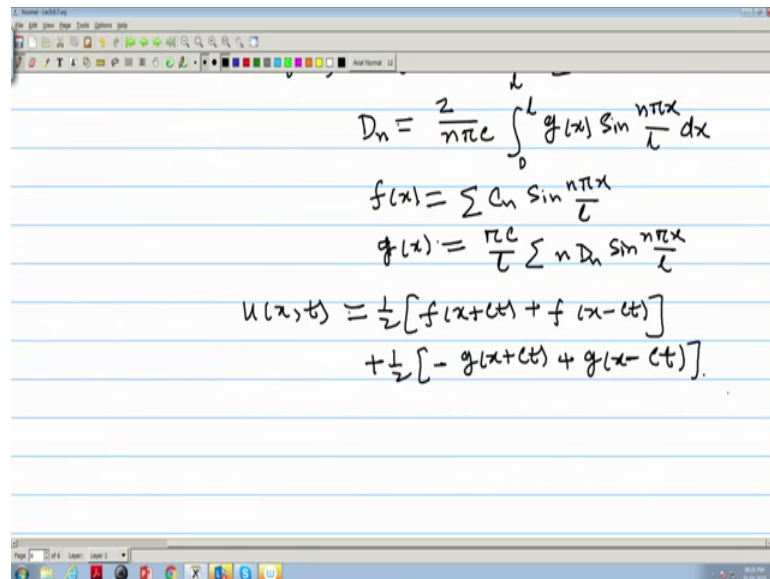 Journal - Lec5&7.xoj
File Edit View Page Tools Options Help
Arial Normal 12
l
Dn = 2/nπc ∫₀ˡ g(x) sin nπx/l dx
f(x) = Σ Cn sin nπx/l
g(x) = πc/l Σ n Dn sin nπx/l
u(x,t) = 1/2 [f(x+ct) + f(x-ct)]
+ 1/2 [- g(x+ct) + g(x-ct)].
Page 6 of 6 Layer: Layer 1